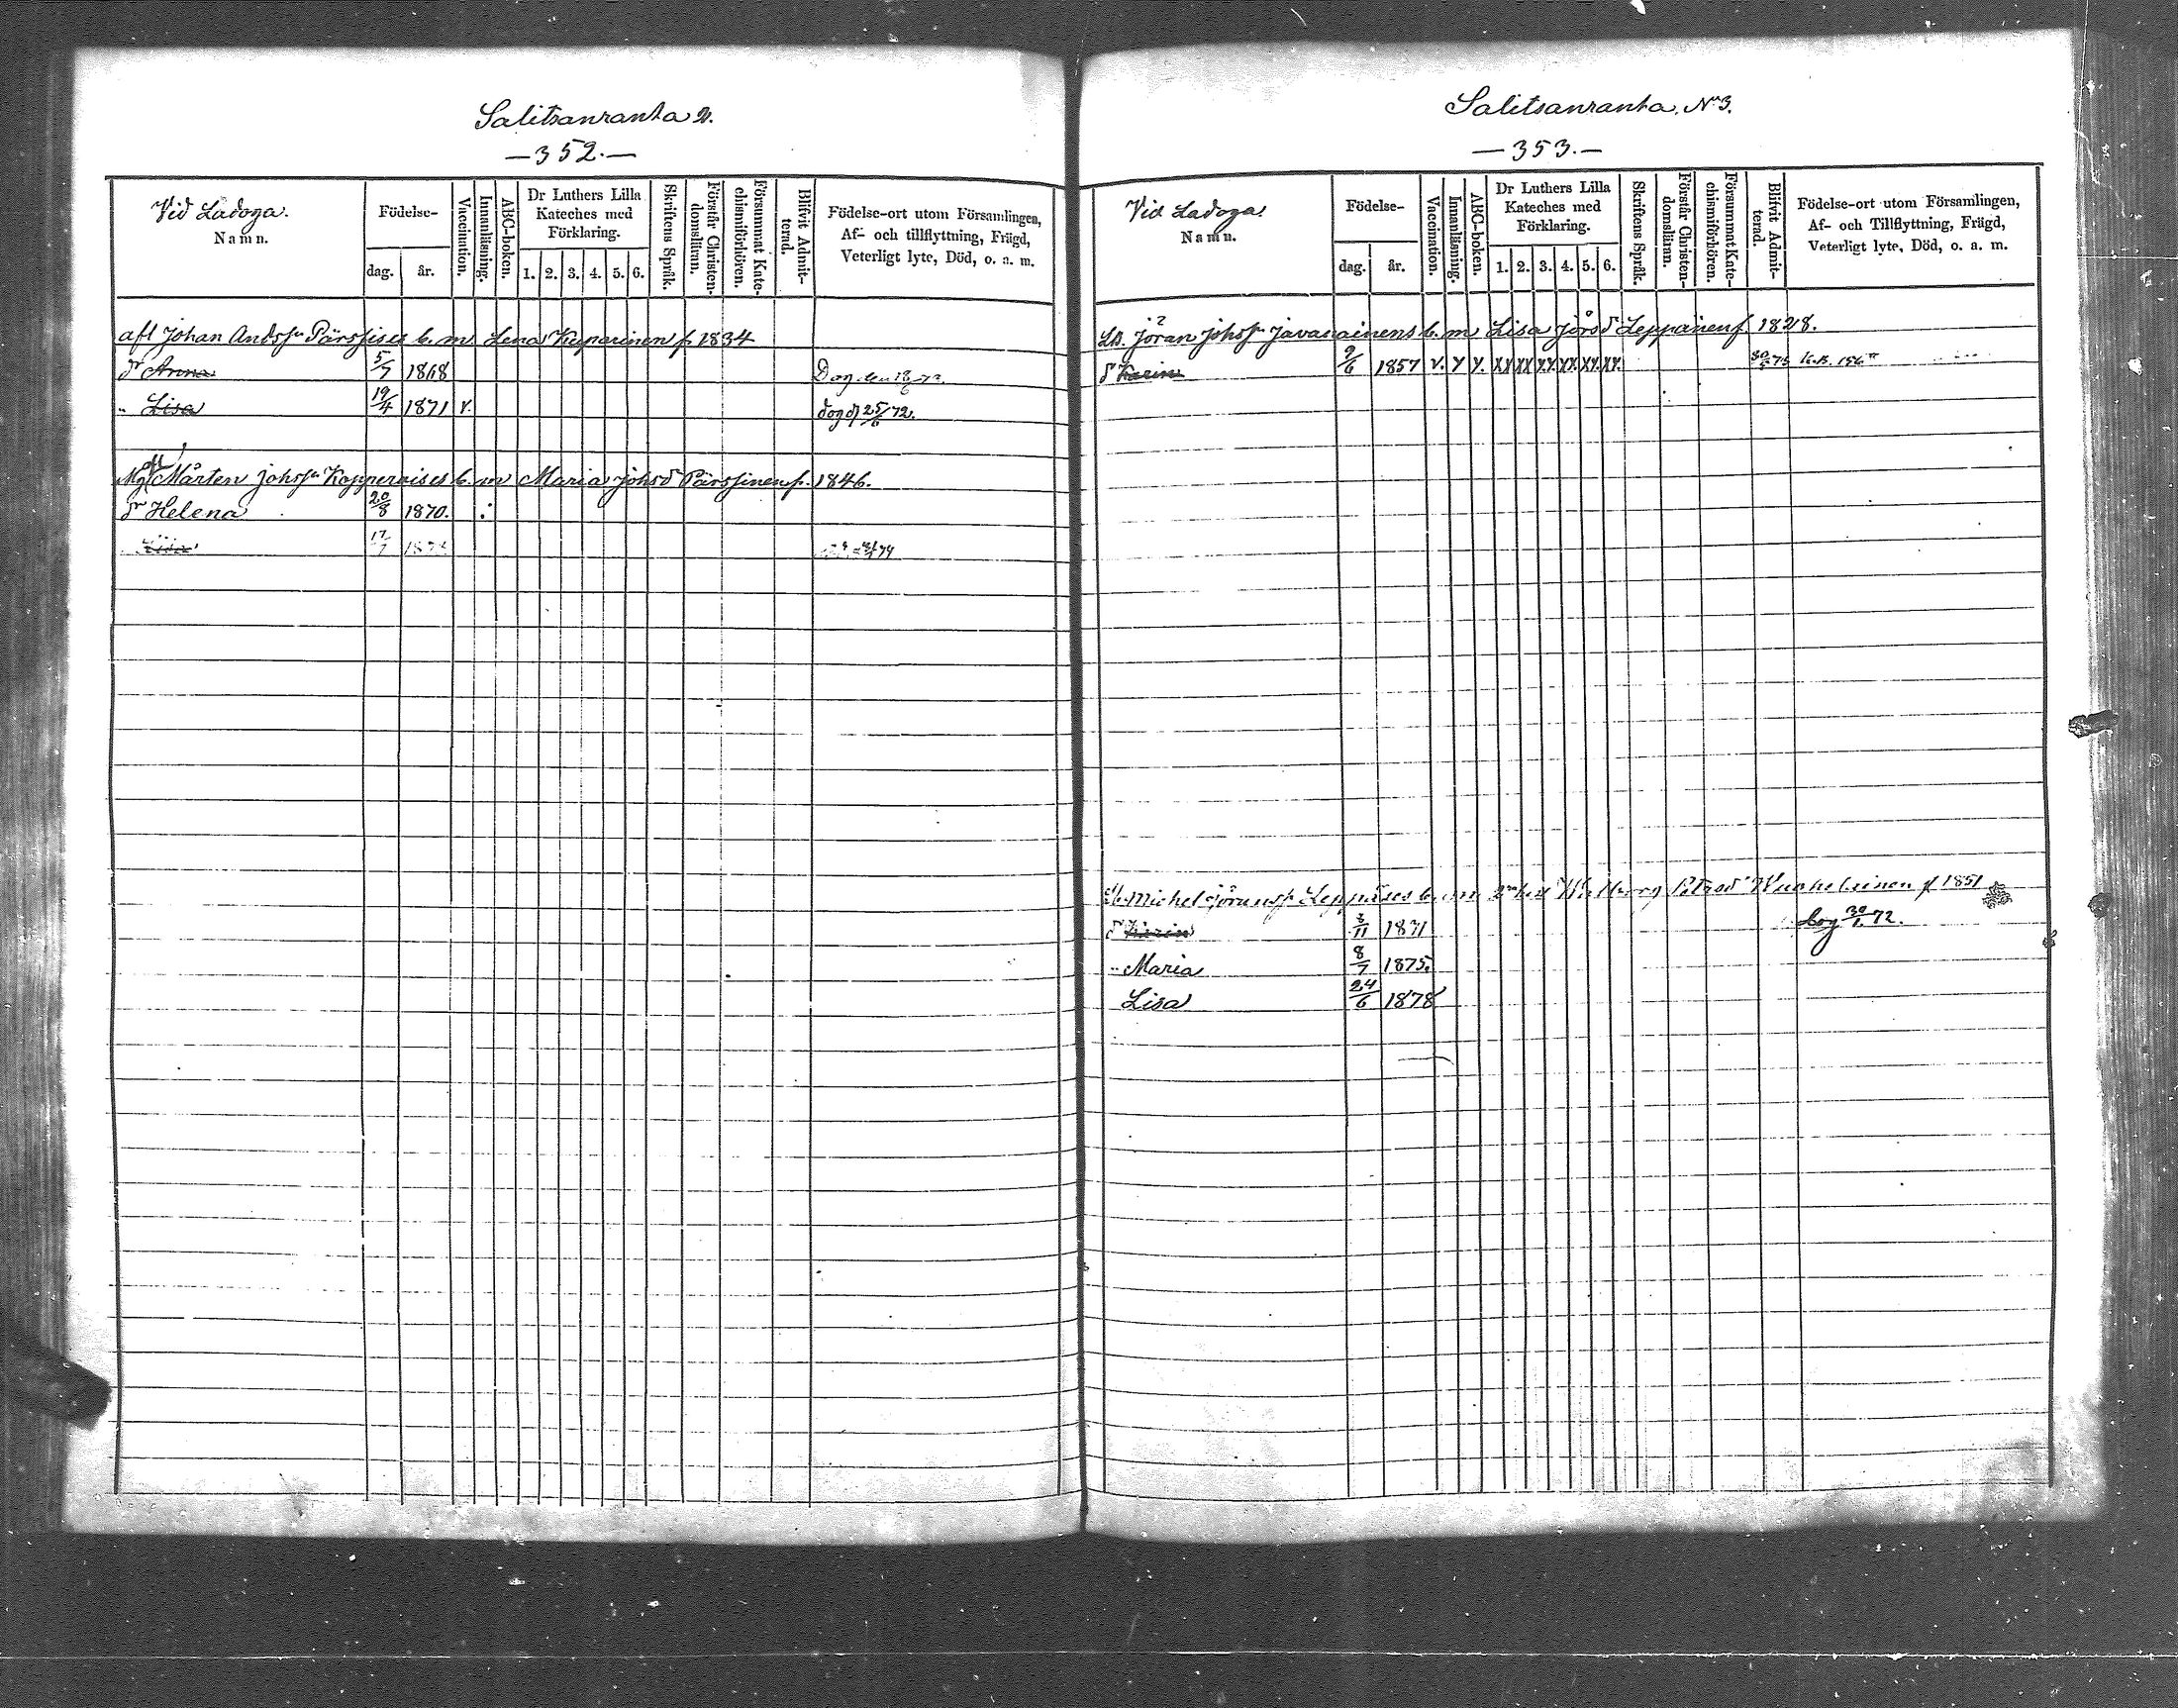 Salitsanranta 2.
—352.—
Vid Ladoga.
Namn.
Födelse-
dag.
år.
Vaccination.
Innanläsning.
ABC-boken.
Dr Luthers Lilla
Kateches med
Förklaring.
1. 2. 3. 4. 5. 6.
Skriftens Språk.
Förstår Christen-
domsläran.
Försummat Kate-
chismiförhören.
Blifvit Admit-
terad.
Födelse-ort utom Församlingen,
Af- och tillflyttning, Frägd,
Veterligt lyte, Död, o. a. m.
afl Johan Andss Pärssises b. m. Lena f 1834
dr Anna 5/7 1868 Dog den
" Lisa 19/4 1871 v. dog d 25/6 72.
Mårten Johss b. m Maria Johsd Pärssinen f. 1846.
dr Helena 20/8 1870.
17/7
Salitsanranta. No 3.
—353.—
Vid Ladoga.
Namn.
Födelse-
dag.
år.
Vaccination.
Innanläsning.
ABC-boken.
Dr Luthers Lilla
Kateches med
Förklaring.
1. 2. 3. 4. 5. 6.
Skriftens Språk.
Förstår Christen-
domsläran.
Försummat Kate-
chismiförhören.
Blifvit Admit-
terad.
Födelse-ort utom Församlingen,
Af- och Tillflyttning, Frägd,
Veterligt lyte, Död, o. a. m.
Jöran Johss b. m Lisa Jörsd Leppänen f 1828.
d Karin 9/6 1857 v. Y Y. XY XY Y.Y. XY. XY. XY. K.B. 156
Michel Jöranss Leppäses b. m Petrsd f 1851
d Karin 3/11 1871 dog 30/1 72.
" Maria 8/7 1875.
Lisa 24/6 1878